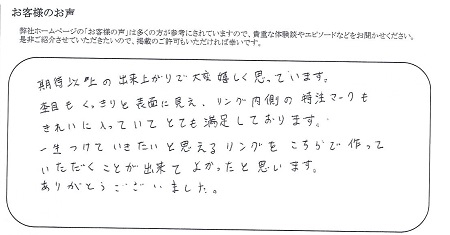 お客様のお声
弊社ホームページの「お客様の声」は多くの方が参考にされていますので、貴重な体験談やエピソードなどをお聞かせください。
是非ご紹介させていただきたいので、掲載のご許可もいただければ幸いです。
期待以上の出来上がりで大変嬉しく思っています。
杢目もくっきりと表面に見え、リング内側の特注マークも
きれいに入っていてとても満足しております。
一生つけていきたいと思えるリングをこちらで作って
いただくことが出来てよかったと思います。
ありがとうございました。